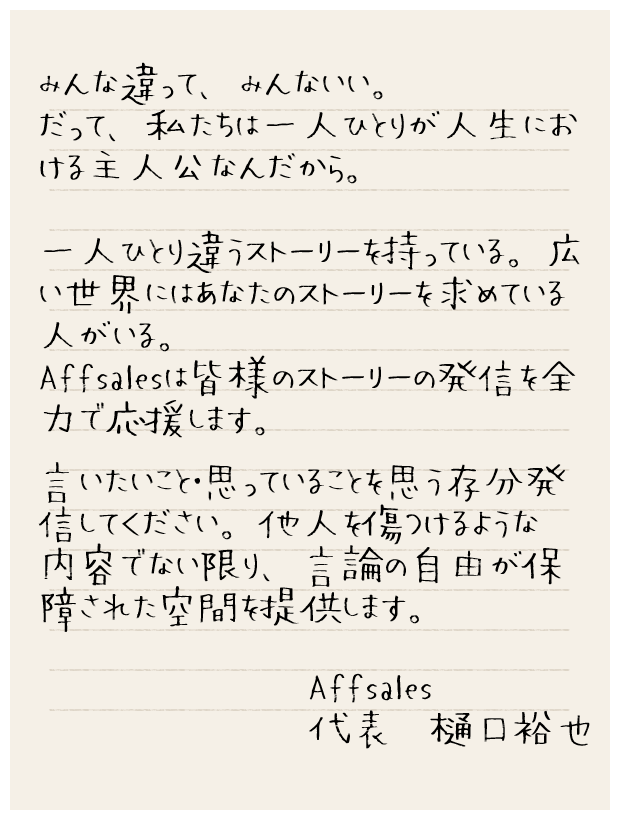 みんな違って、みんないい。
だって、私たちは一人ひとりが人生にお
ける主人公なんだから。
一人ひとり違うストーリーを持っている。広
い世界にはあなたのストーリーを求めている
人がいる。
Affsalesは皆様のストーリーの発信を全
力で応援します。
言いたいこと・思っていることを思う存分発
信してください。他人を傷つけるような
内容でない限り、言論の自由が保
障された空間を提供します。
Affsales
代表　樋口裕也